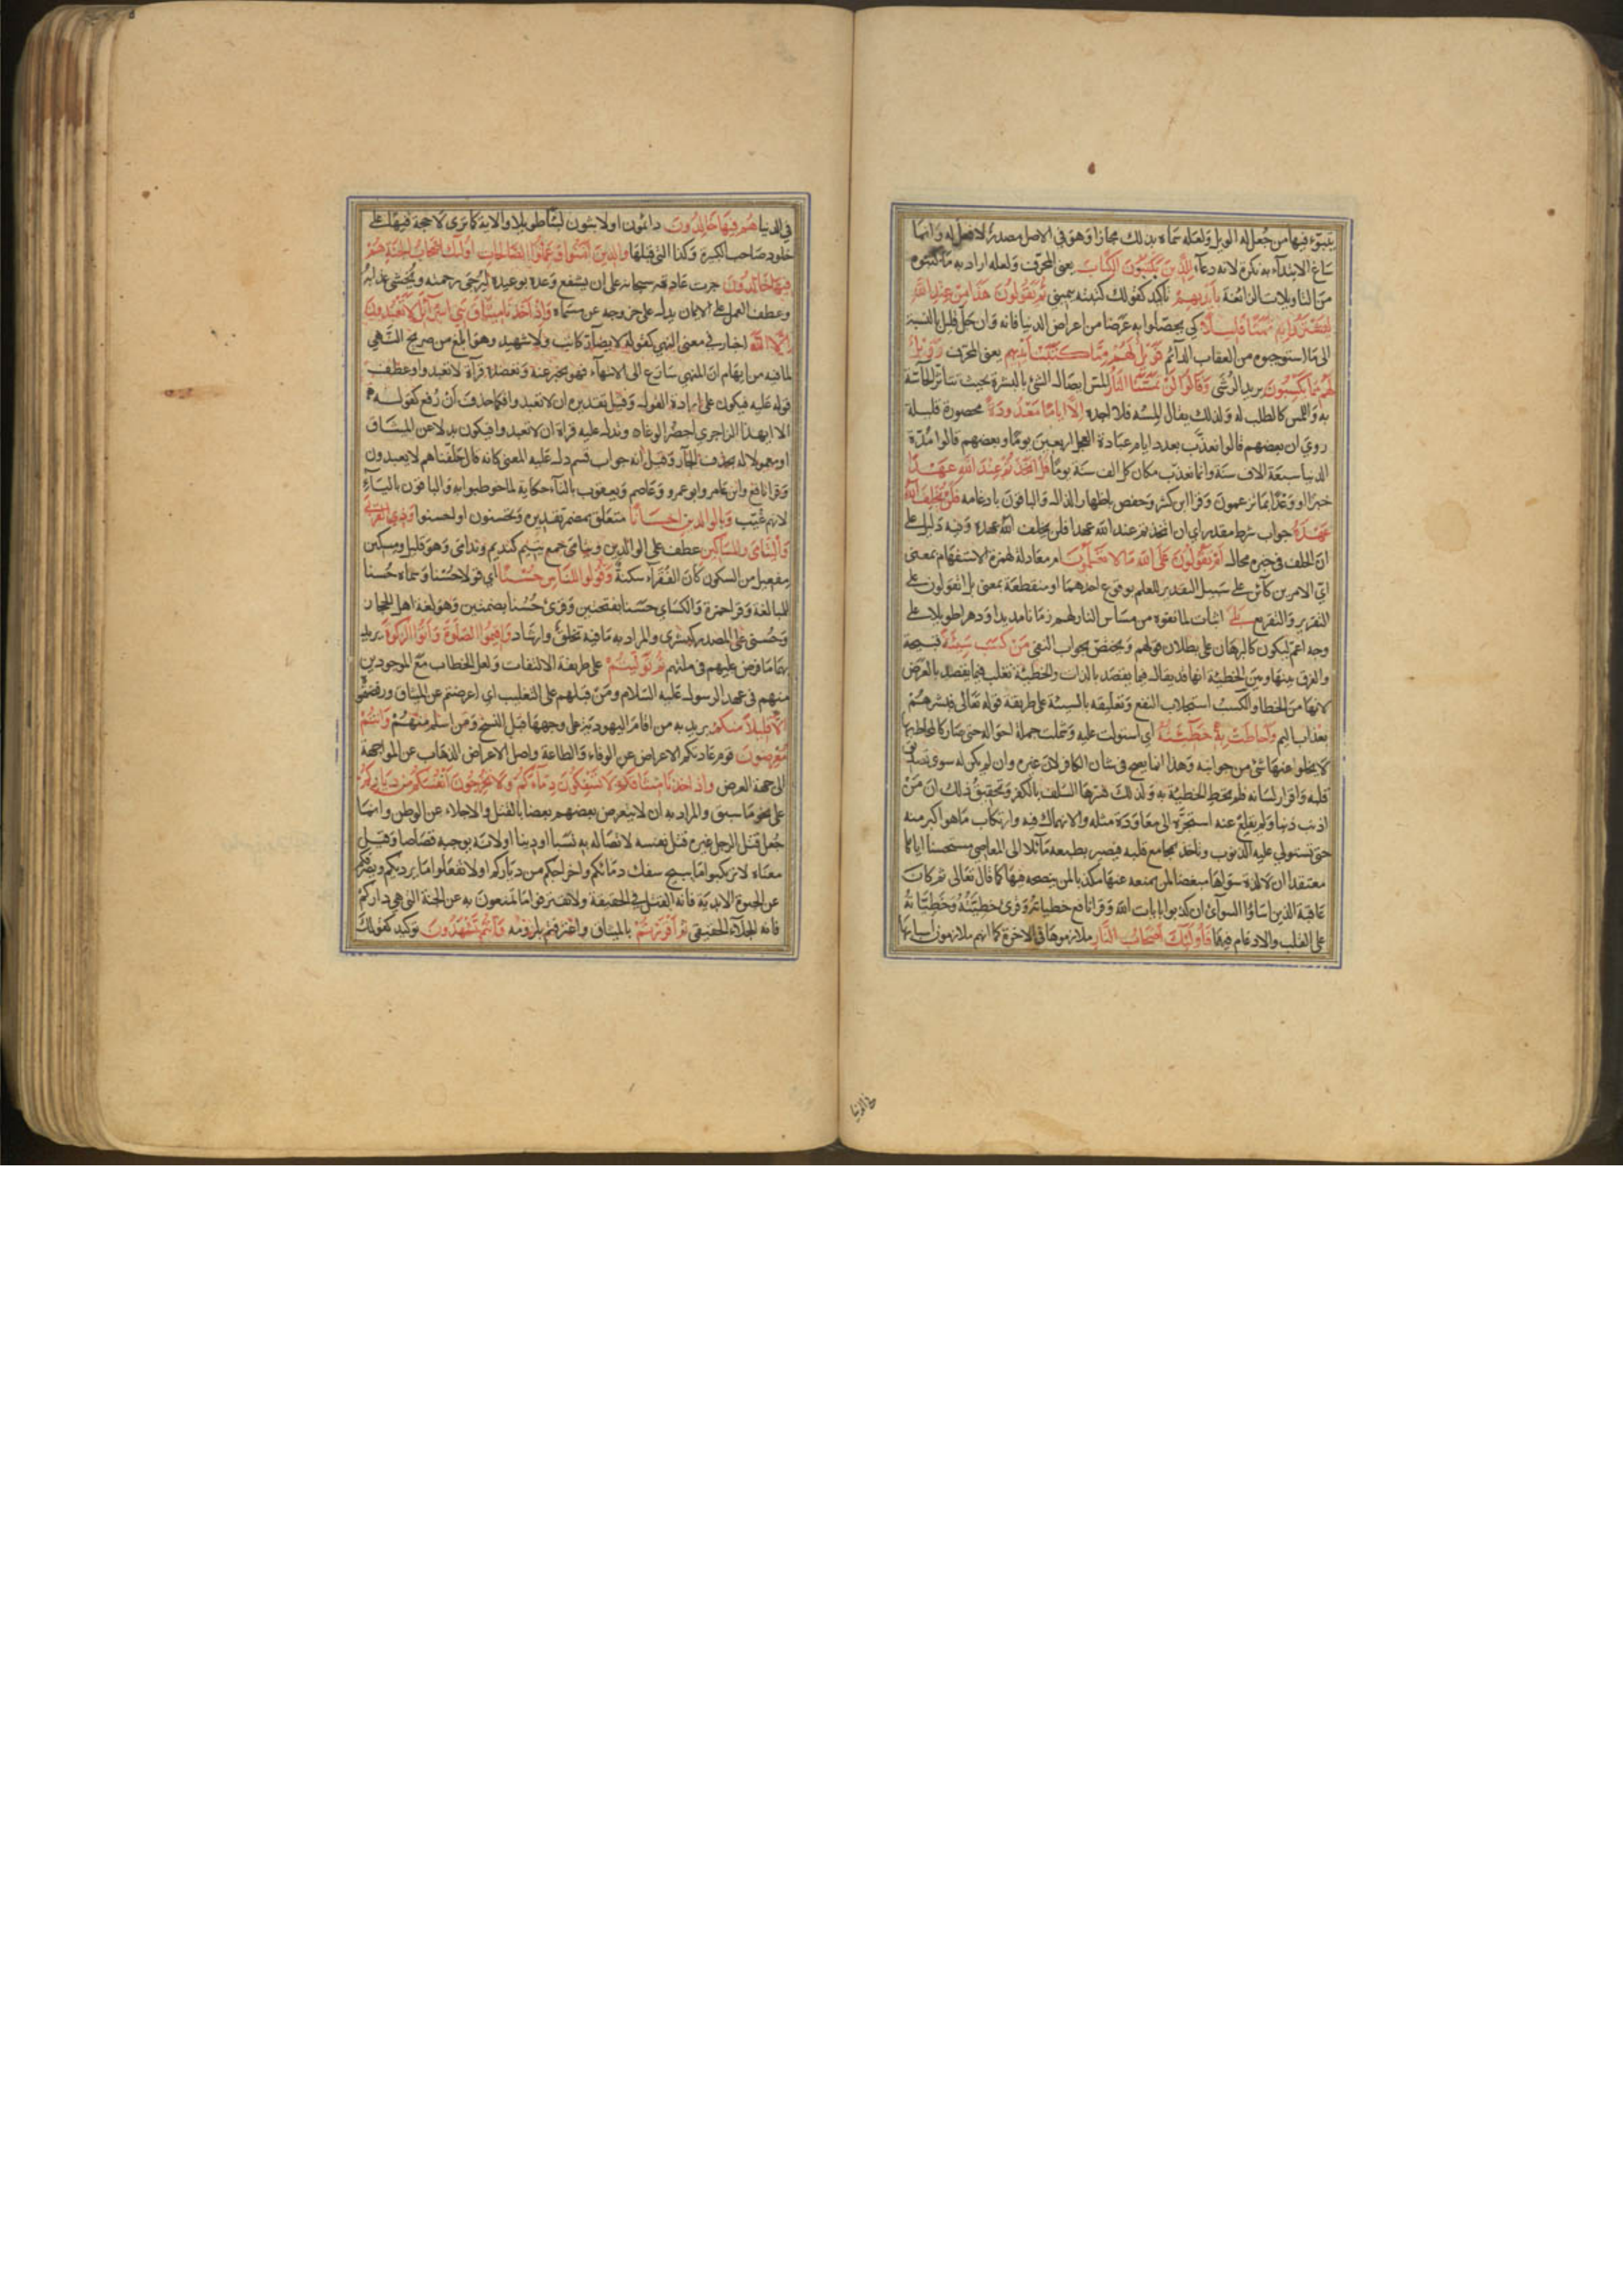 يتبوء فيها من جعل له الويل ولعله سماه بذلك مجازا وهو في الاصل مصدر لا فعل له وانما
ساغ الابتداء به نكرة لانه دعاء للذين يكتبون الكتاب يعني المحرف ولعله اراد به ما كتبوه
من التاويلات الزائغة بايديهم تاكيد كقولك كتبته بيميني ثم يقولون هذا من عند الله
ليشتروا به ثمنا قليلا كي يحصلوا به عرضا من اعراض الدنيا فانه وان جل قليل بالنسبة
الى ما استوجبوه من العقاب الدائم فويل لهم مما كتبت ايديهم يعني المحرف وويل
لهم مما يكسبون يريد الرشى وقالوا لن تمسنا النار المس ايصال الشئ بالبشرة بحيث تتأثر الحاسة
به واللمس كالطلب له ولذلك يقال المسه فلا اجده الا اياما معدودة محصورة قليلة
روي ان بعضهم قالوا نعذب بعدد ايام عبادة العجل اربعين يوما وبعضهم قالوا مدة
الدنيا سبعة الاف سنة وانما نعذب مكان كل الف سنة يوما قل اتخذتم عند الله عهدا
خبرا او وعدا بما تزعمون وقرا ابن كثير وحفص باظهار الذال والباقون بادغامه فلن يخلف الله
عهده جواب شرط مقدر اي ان اتخذتم عند الله عهدا فلن يخلف الله عهده وفيه دليل على
ان الخلف في خبره محال ام تقولون على الله ما لا تعلمون ام معادلة لهمزة الاستفهام بمعنى
اي الامرين كائن على سبيل التقدير للعلم بوقوع احدهما او منقطعة بمعنى بل اتقولون على
التقرير والتقريع بلى اثبات لما نفوه من مساس النار لهم زمانا مديدا ودهرا طويلا على
وجه اعم ليكون كالبرهان على بطلان قولهم ويختص بجواب النفي من كسب سيئة قبيحة
والفرق بينها وبين الخطيئة انها قد يقال فيما يقصد بالذات والخطيئة تغلب فيما يقصد بالعرض
لانها من الخطا والكسب استجلاب النفع وتعليقه بالسيئة على طريقة قوله تعالى فبشرهم
بعذاب اليم واحاطت به خطيئته اي استولت عليه وشملت جملة احواله حتى صار كالمحاط بها
لا يخلوا عنها شئ من جوانبه وهذا انما يصح في شان الكافر لان غيره وان لم يكن له سوى تصديق
قلبه واقرار لسانه فلم تحط الخطيئة به ولذلك فسرها السلف بالكفر وتحقيق ذلك ان من
اذنب ذنبا ولم يقلع عنه استجره الى معاودة مثله والانهماك فيه وارتكاب ما هو اكبر منه
حتى تستولي عليه الذنوب وتاخذ بمجامع قلبه فيصير بطبعه مائلا الى المعاصي مستحسنا اياها
معتقدا ان لا لذة سواها مبغضا لمن يمنعه عنها مكذبا لمن ينصحه فيها كما قال تعالى ثم كان
عاقبة الذين اساؤا السوأى ان كذبوا بايات الله وقرا نافع خطياته وقرئ خطيته وخطياته
على القلب والادغام فيهما فاولئك اصحاب النار ملازموها في الاخرة كما انهم ملازمون اسبابها
في الدنيا
في الدنيا هم فيها خالدون دائمون او لابثون لبثا طويلا والاية كما ترى لا حجة فيها على
خلود صاحب الكبيرة وكذا التي قبلها والذين امنوا وعملوا الصالحات اولئك اصحاب الجنة هم
فيها خالدون جرت عادته سبحانه على ان يشفع وعده بوعيده ليرجى رحمته ويخشى عذابه
وعطف العمل على الايمان يدل على خروجه عن مسماه واذ اخذنا ميثاق بني اسرائل لا تعبدون
الا الله اخبار في معنى النهي كقوله لا يضار كاتب ولا شهيد وهو ابلغ من صريح النهي
لما فيه من ايهام ان المنهي سارع الى الانتهاء فهو يخبر عنه وتعضده قرآة لا تعبدوا وعطف
قوله عليه فيكون على ارادة القول وقيل تقديره ان لا تعبدوا فلما حذف ان رفع كقوله
الا ايهذا الزاجري احضر الوغاه وتدل عليه قراة ان لا تعبدوا فيكون بدلا عن الميثاق
او معمولا له بحذف الجار وقيل انه جواب قسم دل عليه المعنى كانه قال حلفناهم لا يعبدون
وقرا نافع وابن عامر وابو عمرو وعاصم ويعقوب بالتاء حكاية لما خوطبوا به والباقون بالياء
لانهم غيب وبالوالدين احسانا متعلق بمضمر تقديره وتحسنون او احسنوا وذي القربى
واليتامى والمساكين عطف على الوالدين ويتامى جمع يتيم كنديم وندامى وهو قليل ومسكين
مفعيل من السكون كان الفقرآء سكنه وقولوا للناس حسنا اي قولا حسنا وسماه حسنا
للمبالغة وقرا حمزة والكساي حسنا بفتحتين وقرئ حسنا بضمتين وهو لغة اهل الحجاز
وحسنى على المصدر كبشرى والمراد به ما فيه تخلق وارشاد واقيموا الصلوة واتوا الزكوة يريد
بهما ما فرض عليهم في ملتهم ثم توليتم على طريقة الالتفات ولعل الخطاب مع الموجودين
منهم في عهد الرسول عليه السلام ومن قبلهم على التغليب اي اعرضتم عن الميثاق ورفضتموه
الا قليلا منكم يريد به من اقام اليهودية على وجهها قبل النسخ ومن اسلم منهم وانتم
معرضون قوم عادتكم الاعراض عن الوفاء والطاعة واصل الاعراض الذهاب عن المواجهة
الى جهة العرض واذ اخذنا ميثاقكم لا تسفكون دماءكم ولا تخرجون انفسكم من دياركم
على نحو ما سبق والمراد به ان لا يتعرض بعضهم بعضا بالقتل والاجلاء عن الوطن وانما
جعل قتل الرجل غيره قتل نفسه لاتصاله به نسبا او دينا او لانه يوجبه قصاصا وقيل
معناه لا ترتكبوا ما يبيح سفك دمائكم واخراجكم من دياركم او لا تفعلوا ما يرديكم ويصرفكم
عن الحيوة الابدية فانه القتل في الحقيقة ولا تقترفوا ما تمنعون به عن الجنة التي هي داركم
فانه الجلآء الحقيقي ثم اقررتم بالميثاق واعترفتم بلزومه وانتم تشهدون توكيد كقولك